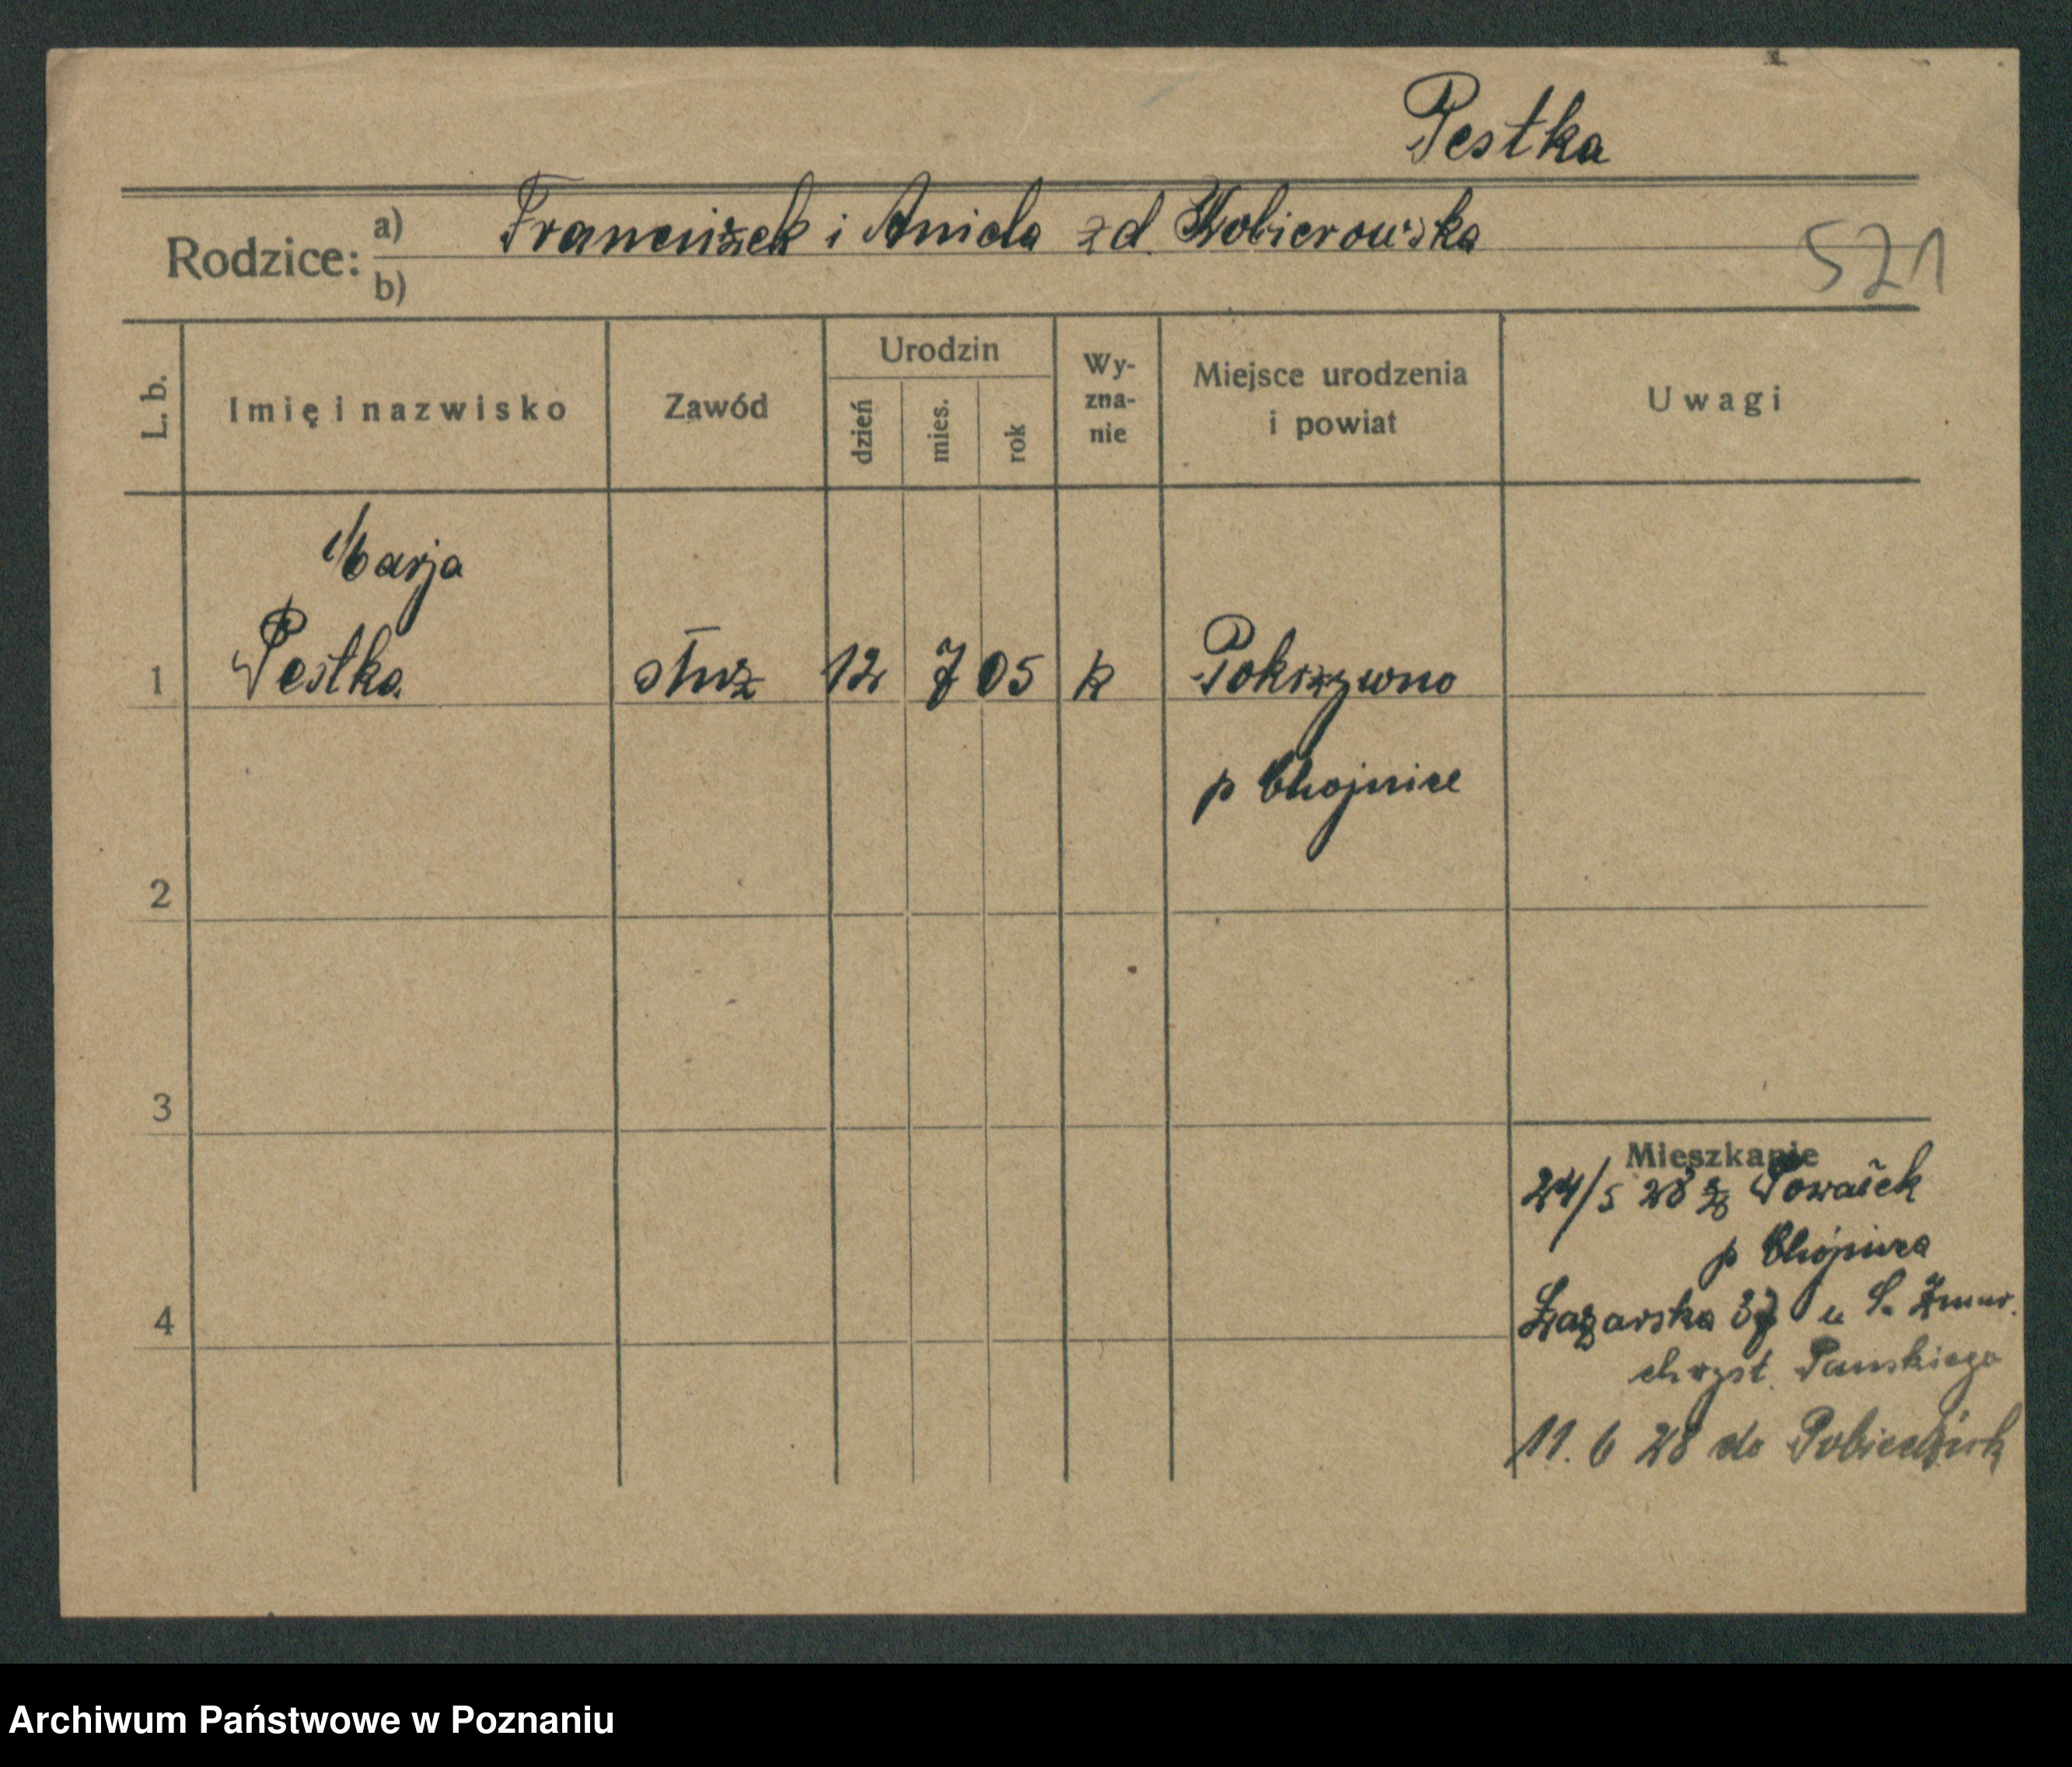 Pestka
Rodzice: a) Franciszek i Aniela zd. Skobierowska
b)
521
L. b. Imię i nazwisko Zawód Urodzin dzień mies. rok Wy-zna-nie Miejsce urodzenia i powiat Uwagi
Marja
1 Pestka służ 12 7 05 k Pokrzywno
p Chojnice
2
3
Mieszkanie
24/5 28 z
p Chojnica
4 Łazarska 37 u
chrzst. Panskiego
11. 6 28 do Pobiedzisk
Archiwum Państwowe w Poznaniu